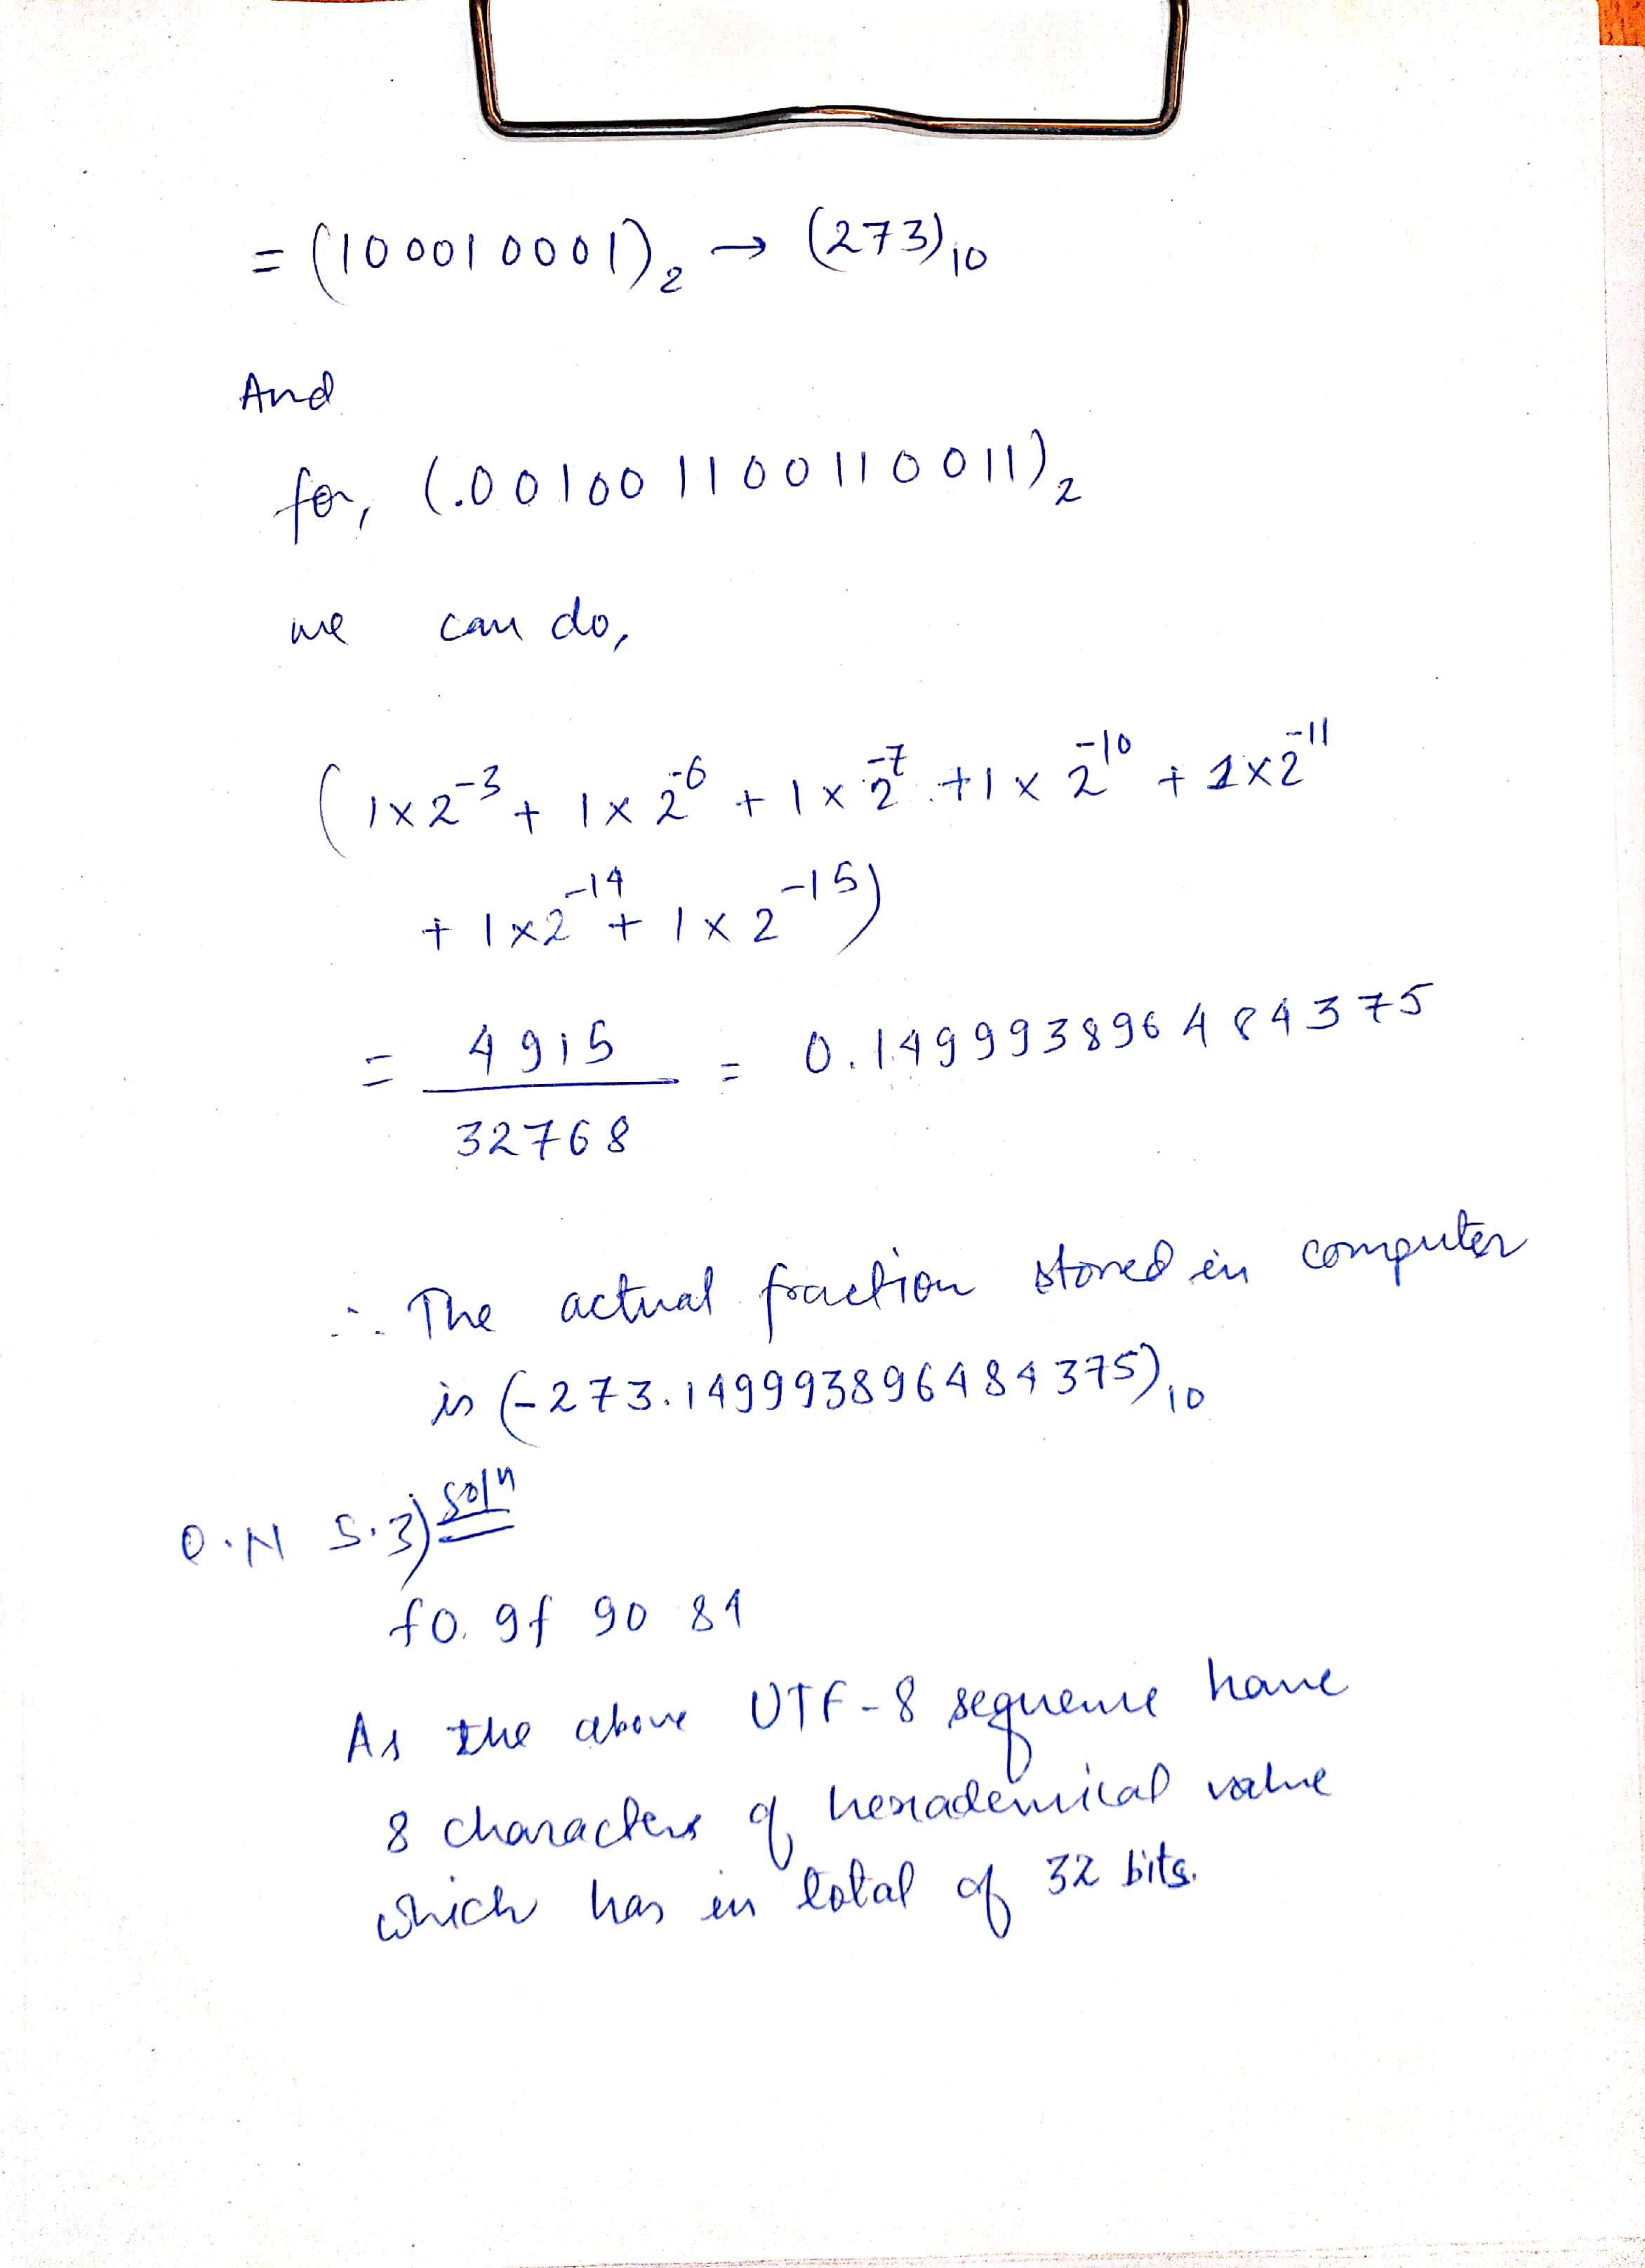 = (100010001)₂ → (273)₁₀
And
for, (.001001100110011)₂
we can do,
(1×2⁻³ + 1×2⁻⁶ + 1×2⁻⁷ + 1×2⁻¹⁰ + 1×2⁻¹¹
+ 1×2⁻¹⁴ + 1×2⁻¹⁵)
= 4915 / 32768 = 0.149993896484375
∴ The actual fraction stored in computer
is (-273.149993896484375)₁₀
Q.N 5.3) Solⁿ
f0. 9f 90 84
As the above UTF-8 sequence have
8 characters of hexademical value
which has in total of 32 bits.